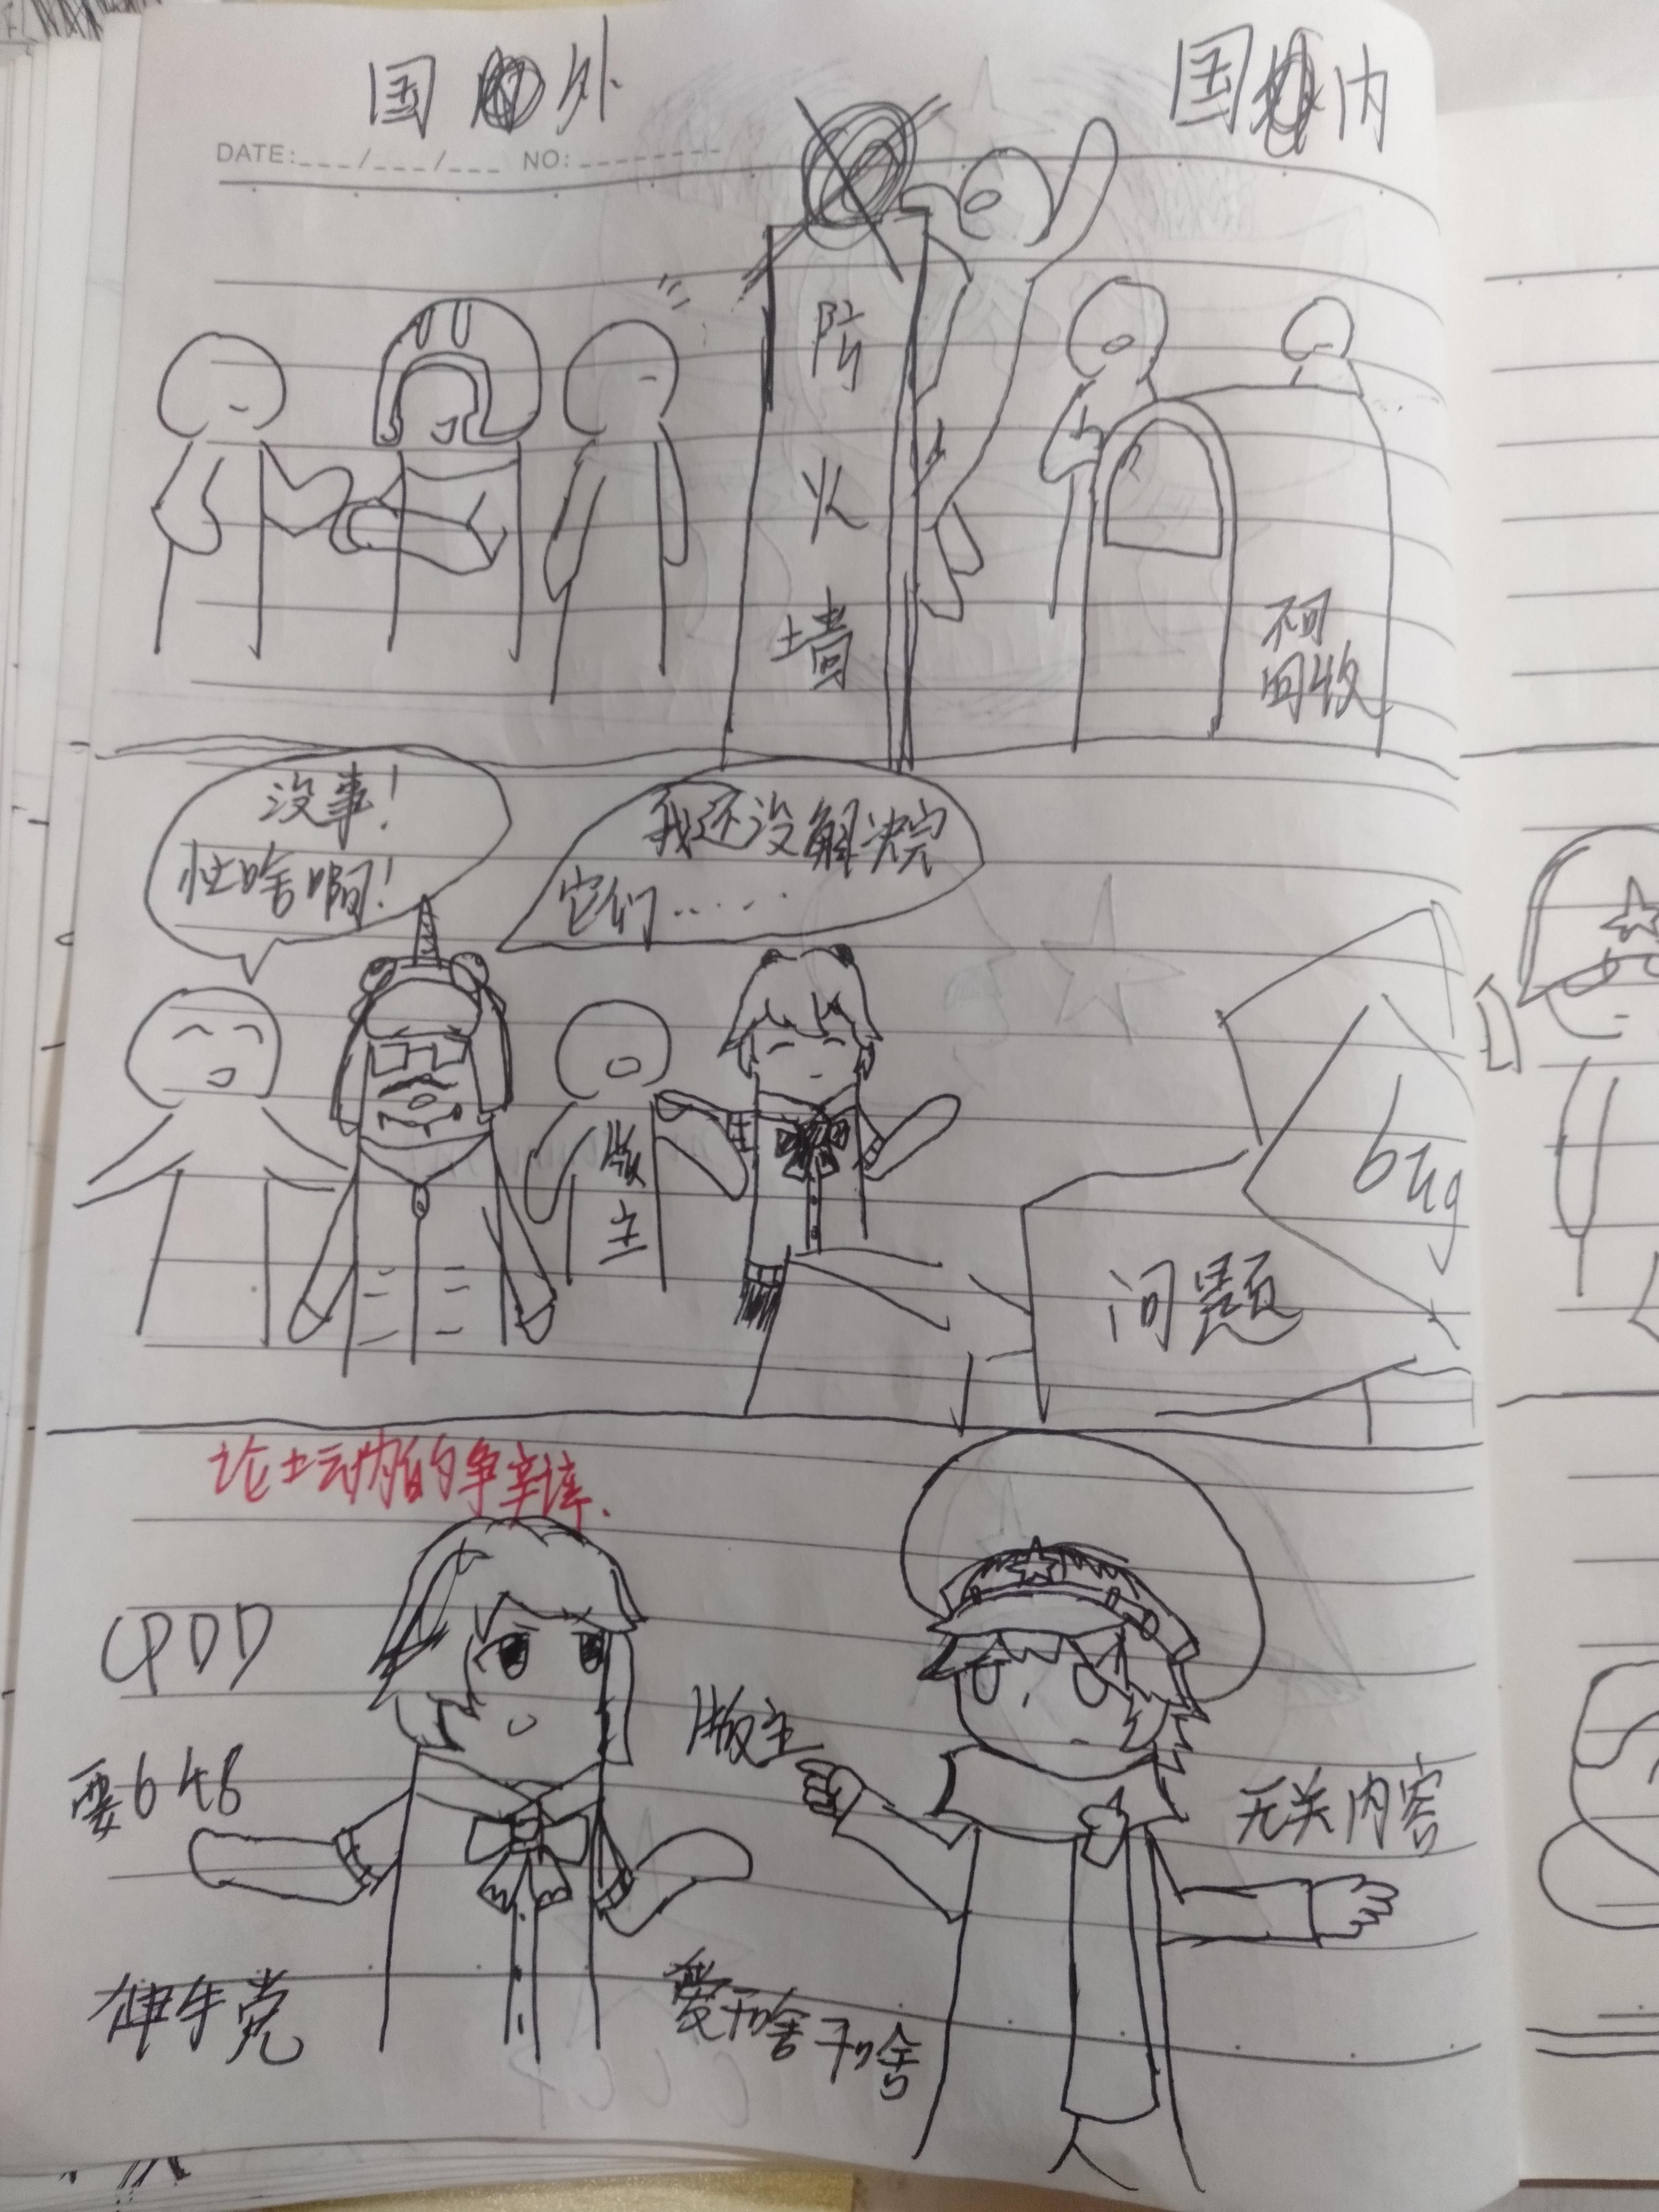 国外
国内
DATE:___/___/___ NO:________
防
火
墙
不可
回收
没事!
忙啥啊!
我还没解决完
它们......
版
主
bug
问题
论坛内的争辩
CPDD
要648
版主
无关内容
爱干啥干啥